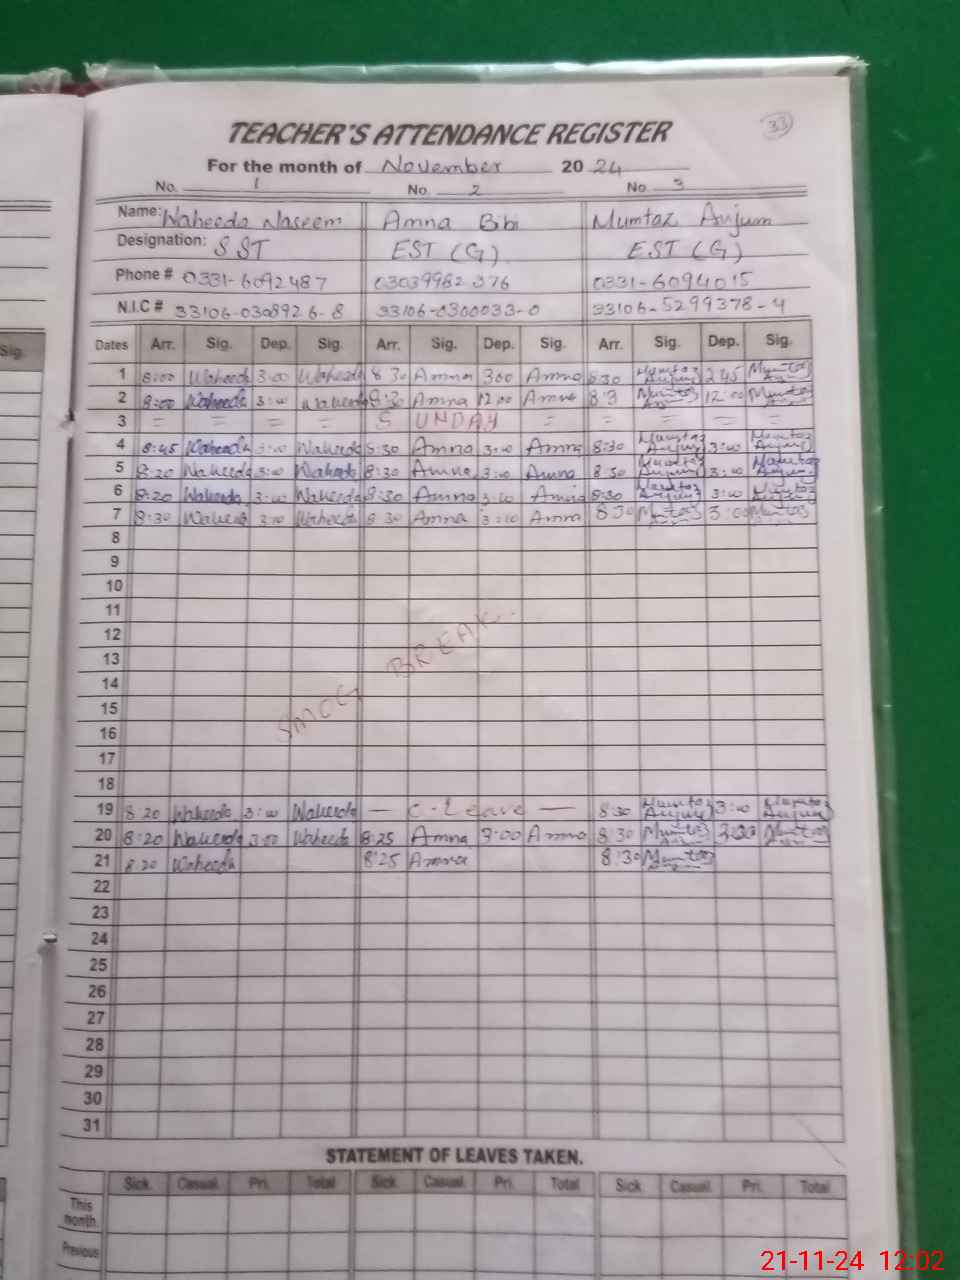 33
TEACHER'S ATTENDANCE REGISTER
For the month of November 2024
No. 1 No. 2 No. 3
Name: Waheeda Naseem Amna Bibi Mumtaz Anjum
Designation: SST EST (G) EST (G)
Phone # 0331-6092487 03039982376 0331-6094015
N.I.C # 33106-0308926-8 33106-0300033-0 33106-5299378-4
Sig.
Dates Arr. Sig. Dep. Sig. Arr. Sig. Dep. Sig. Arr. Sig. Dep. Sig.
1 8:00 Waheeda 3:00 Waheeda 8 30 Amna 300 Amna 8:30 Mumtaz Anjum 2 45 Mumtaz
2 8:00 Waheeda 3:00 Waheeda 8:30 Amna 12 00 Amna 8:3 Mumtaz 12:00 Mumtaz
3 = = = = SUNDAY = = = = =
4 8:45 Waheeda 3:00 Waheeda 8:30 Amna 3:00 Amna 8:30 Mumtaz Anjum 3:00 Mumtaz Anjum
5 8:20 Waheeda 3:00 Waheeda 8:30 Amna 3:00 Amna 8 30 Mumtaz Anjum 3:00 Mumtaz Anjum
6 8:20 Waheeda 3:00 Waheeda 8:30 Amna 3:00 Amna 8:30 Mumtaz Anjum 3:00 Mumtaz
7 8:30 Waheeda 3:00 Waheeda 8 30 Amna 3:10 Amna 8 30 Mumtaz 3:00 Mumtaz
8
9
10
11
12
13
14
SMOG BREAK.
15
16
17
18
19 8:20 Waheeda 3:00 Waheeda — C-Leave — 8:30 Mumtaz Anjum 3:00 Mumtaz Anjum
20 8:20 Waheeda 3:00 Waheeda 8:25 Amna 3:00 Amna 8:30 Mumtaz 3:00 Mumtaz
21 8:20 Waheeda 8:25 Amna 8:30 Mumtaz
22
23
24
25
26
27
28
29
30
31
STATEMENT OF LEAVES TAKEN.
Sick. Casual. Pri. Total Sick. Casual. Pri. Total Sick. Casual. Pri. Total
This
month.
Previous
21-11-24 12:02